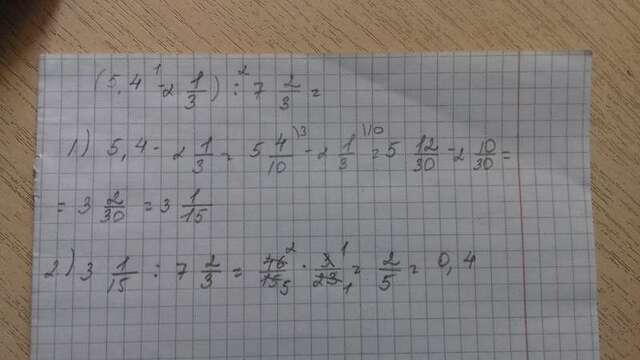 (5,4 - 2 1/3) : 7 2/3 =
1) 5,4 - 2 1/3 = 5 4/10 - 2 1/3 = 5 12/30 - 2 10/30 =
= 3 2/30 = 3 1/15
2) 3 1/15 : 7 2/3 = 46/15 · 3/23 = 2/5 = 0,4